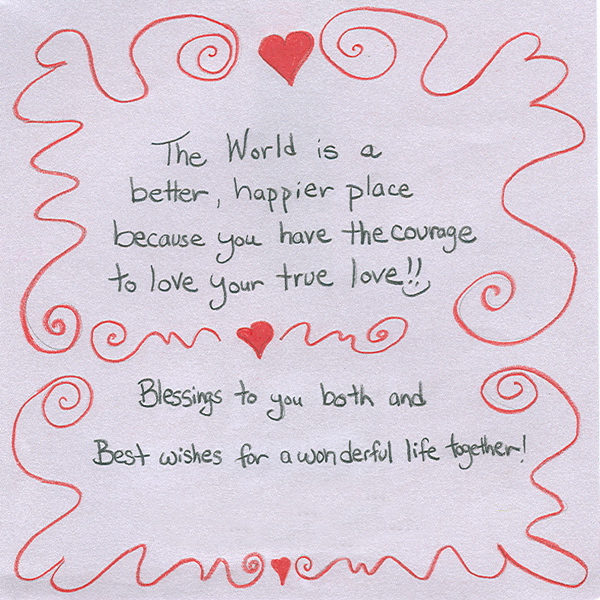 The World is a
better, happier place
because you have the courage
to love your true love!!
Blessings to you both and
Best wishes for a wonderful life together!